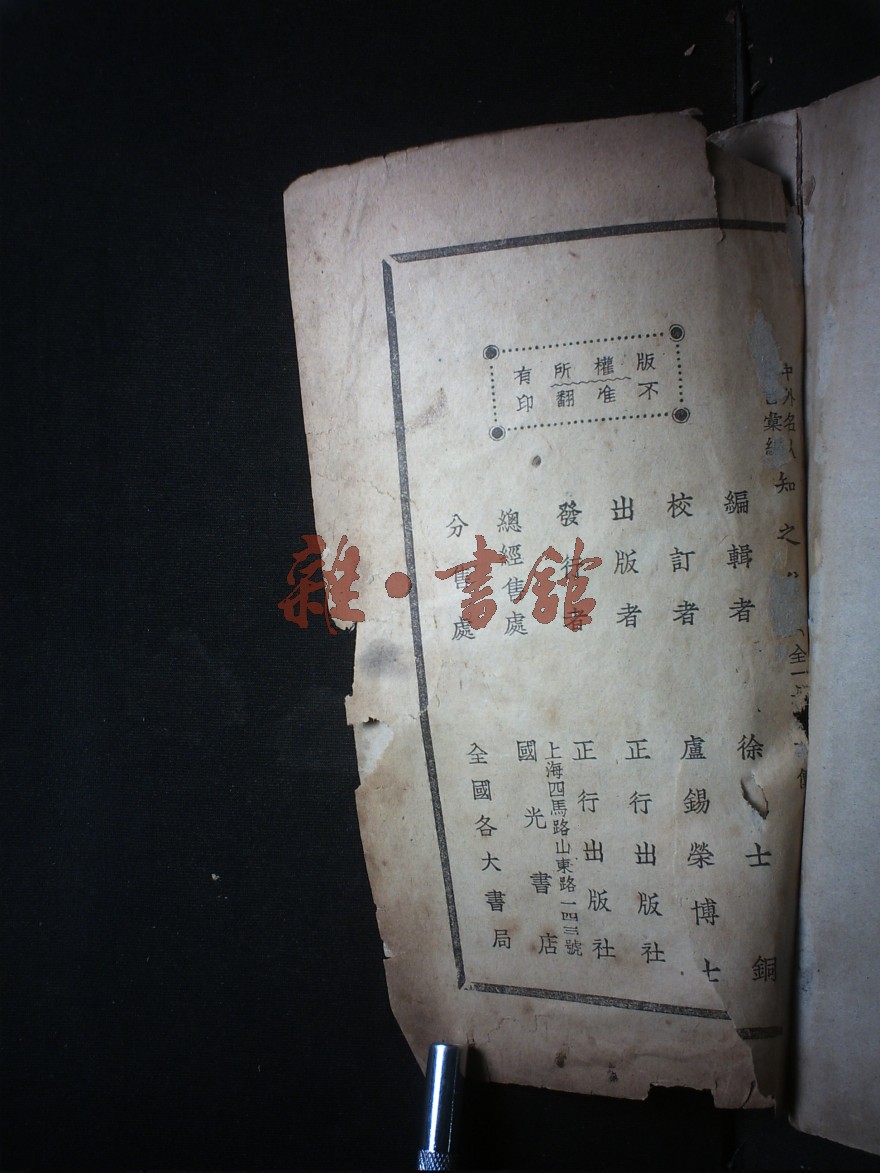 版權所有
不准翻印
中外名人
彙
知之
全一
編輯者 徐士銅
校訂者 盧錫榮博士
出版者 正行出版社
發行者 正行出版社
上海四馬路山東路一四三號
總經售處 國光書店
分售處 全國各大書局
雜·書館